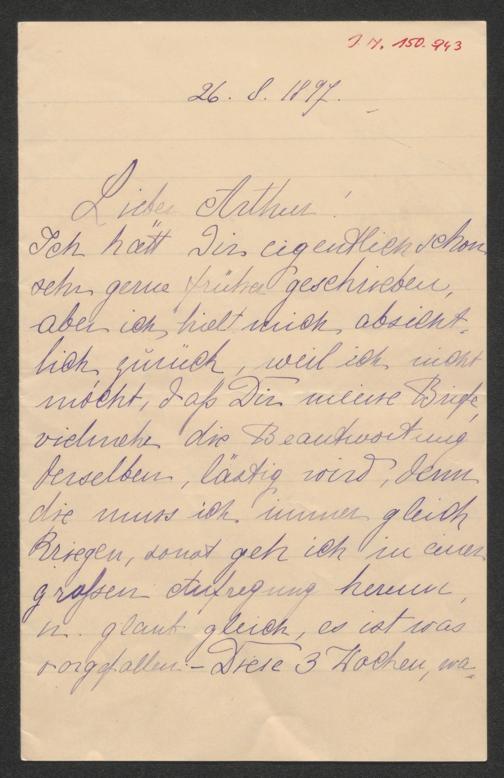 I. N. 150.943
26. 8. 1897.
Lieber Arthur!
Ich hätt Dir eigentlich schon
sehr gerne früher geschrieben,
aber ich hielt mich absicht-
lich zurück, weil ich nicht
möcht, daß Dir meine Briefe,
vielmehr die Beantwortung
derselben, lästig wird, denn
die muss ich immer gleich
kriegen, sonst geh ich in einer
großen Aufregung herum,
u. glaub gleich, es ist was
vorgefallen. – Diese 3 Wochen, wa-